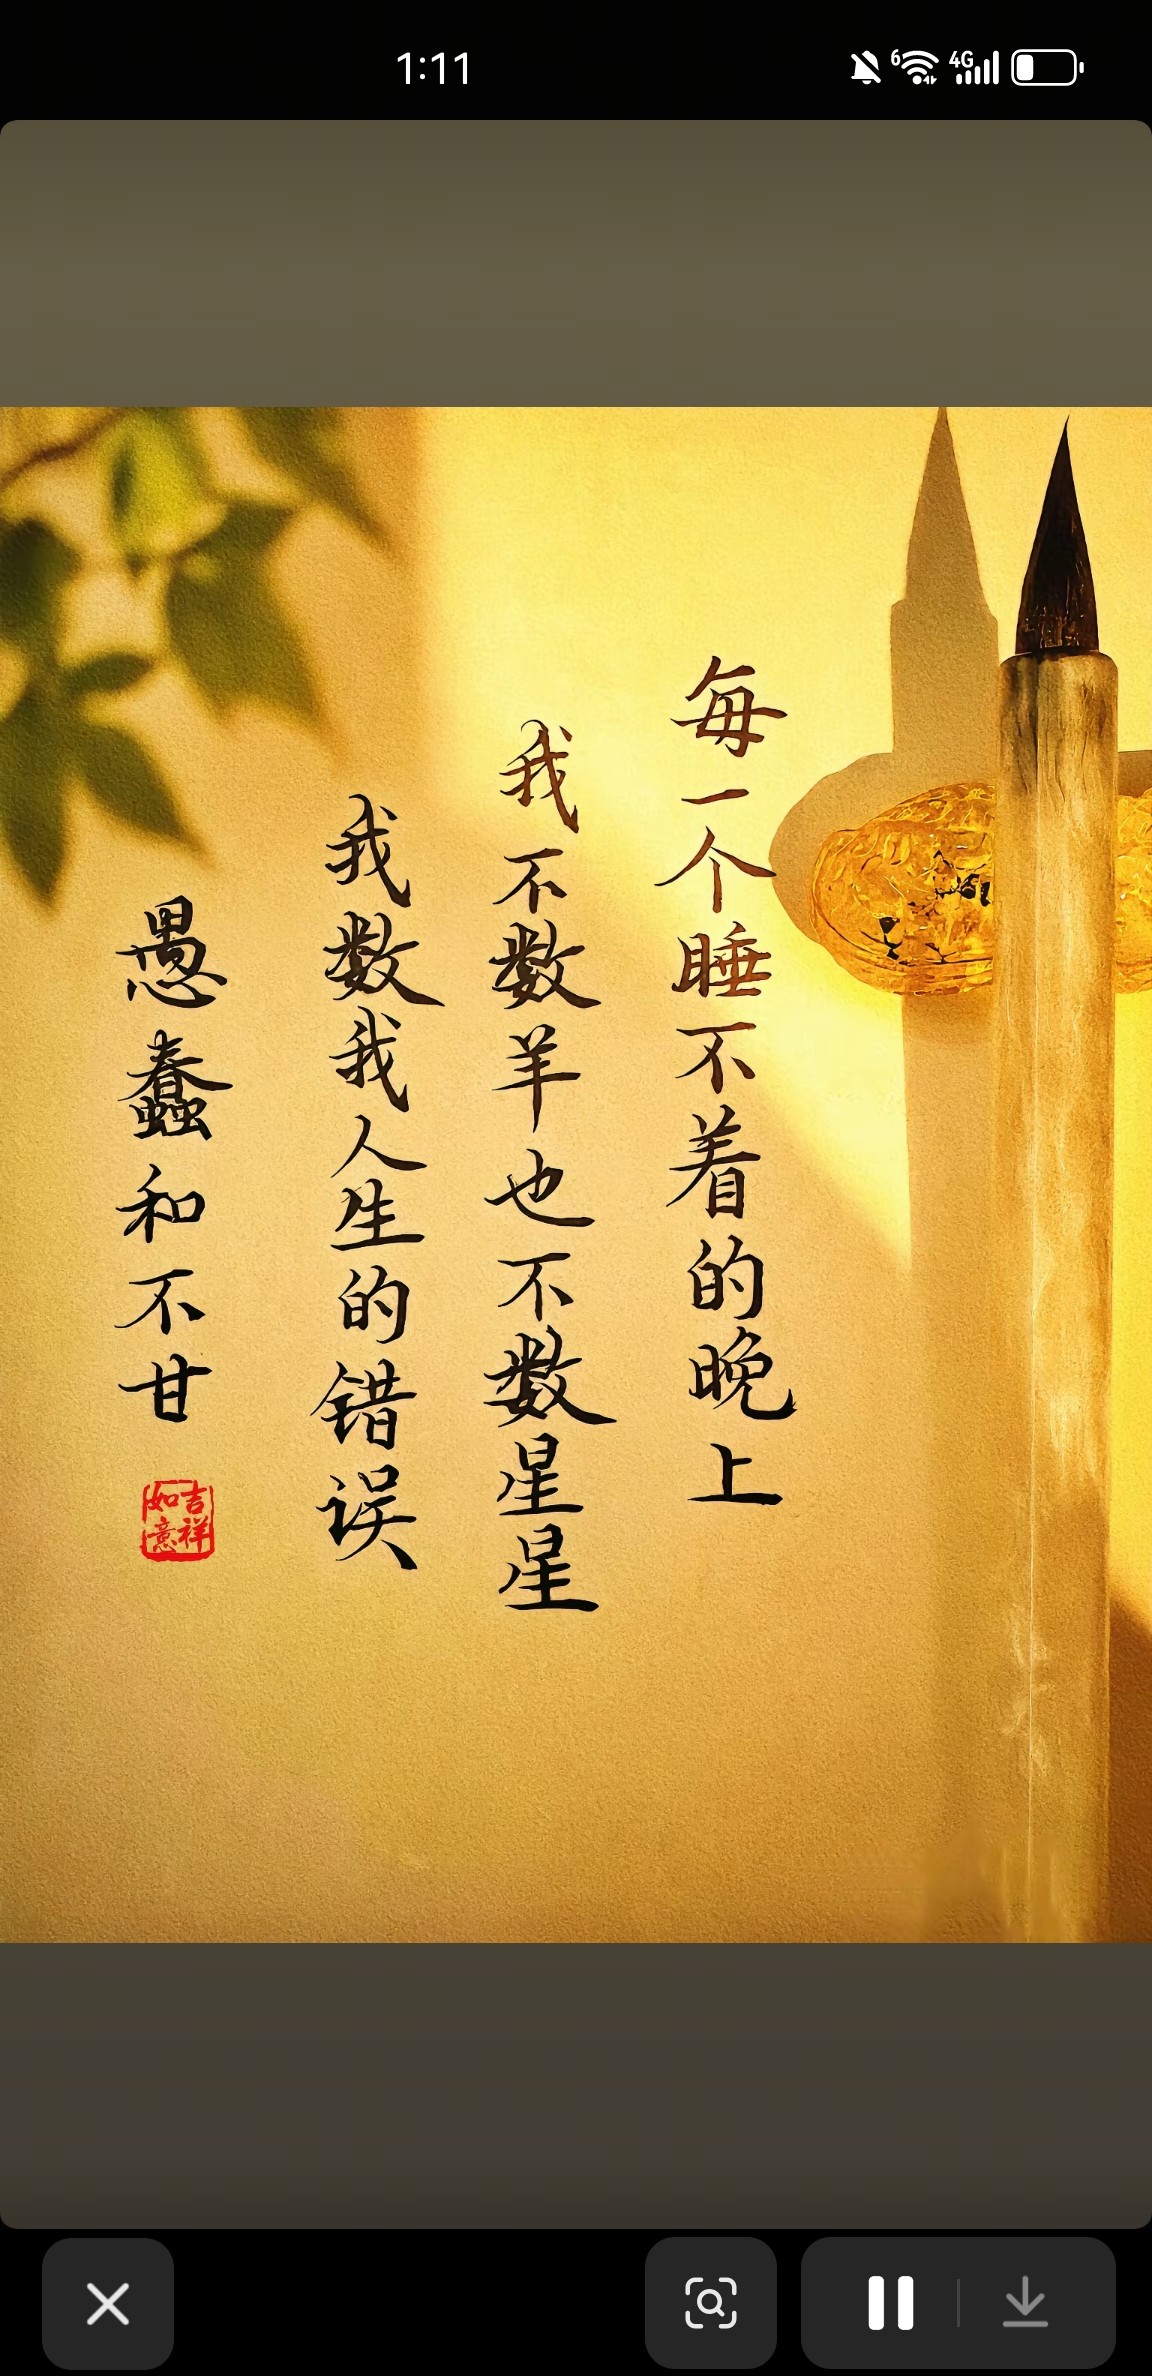 1:11
6
4G
每一个睡不着的晚上
我不数羊也不数星星
我数我人生的错误
愚蠢和不甘
吉祥
如意